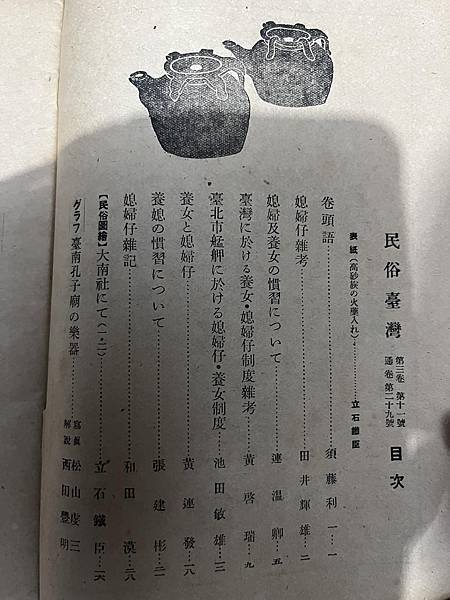 民俗臺灣 第三卷 第十一號 通卷第二十九號 目次
表紙（高砂族の火藥入れ）……立石鐵臣
卷頭語……須藤利一…一
媳婦仔雜考……田井輝雄…二
媳婦及養女の慣習について……連溫卿…五
臺灣に於ける養女・媳婦仔制度雜考……黃啓瑞…九
臺北市艋舺に於ける媳婦仔・養女制度……池田敏雄…一三
養女と媳婦仔……黃連發…一八
養媳の慣習について……張建彬…二一
媳婦仔雜記……和田漠…二八
【民俗圖繪】大南社にて（一・二）……立石鐵臣…一六
グラフ 臺南孔子廟の樂器…… 寫眞 松山虔三 解說 西田豐明